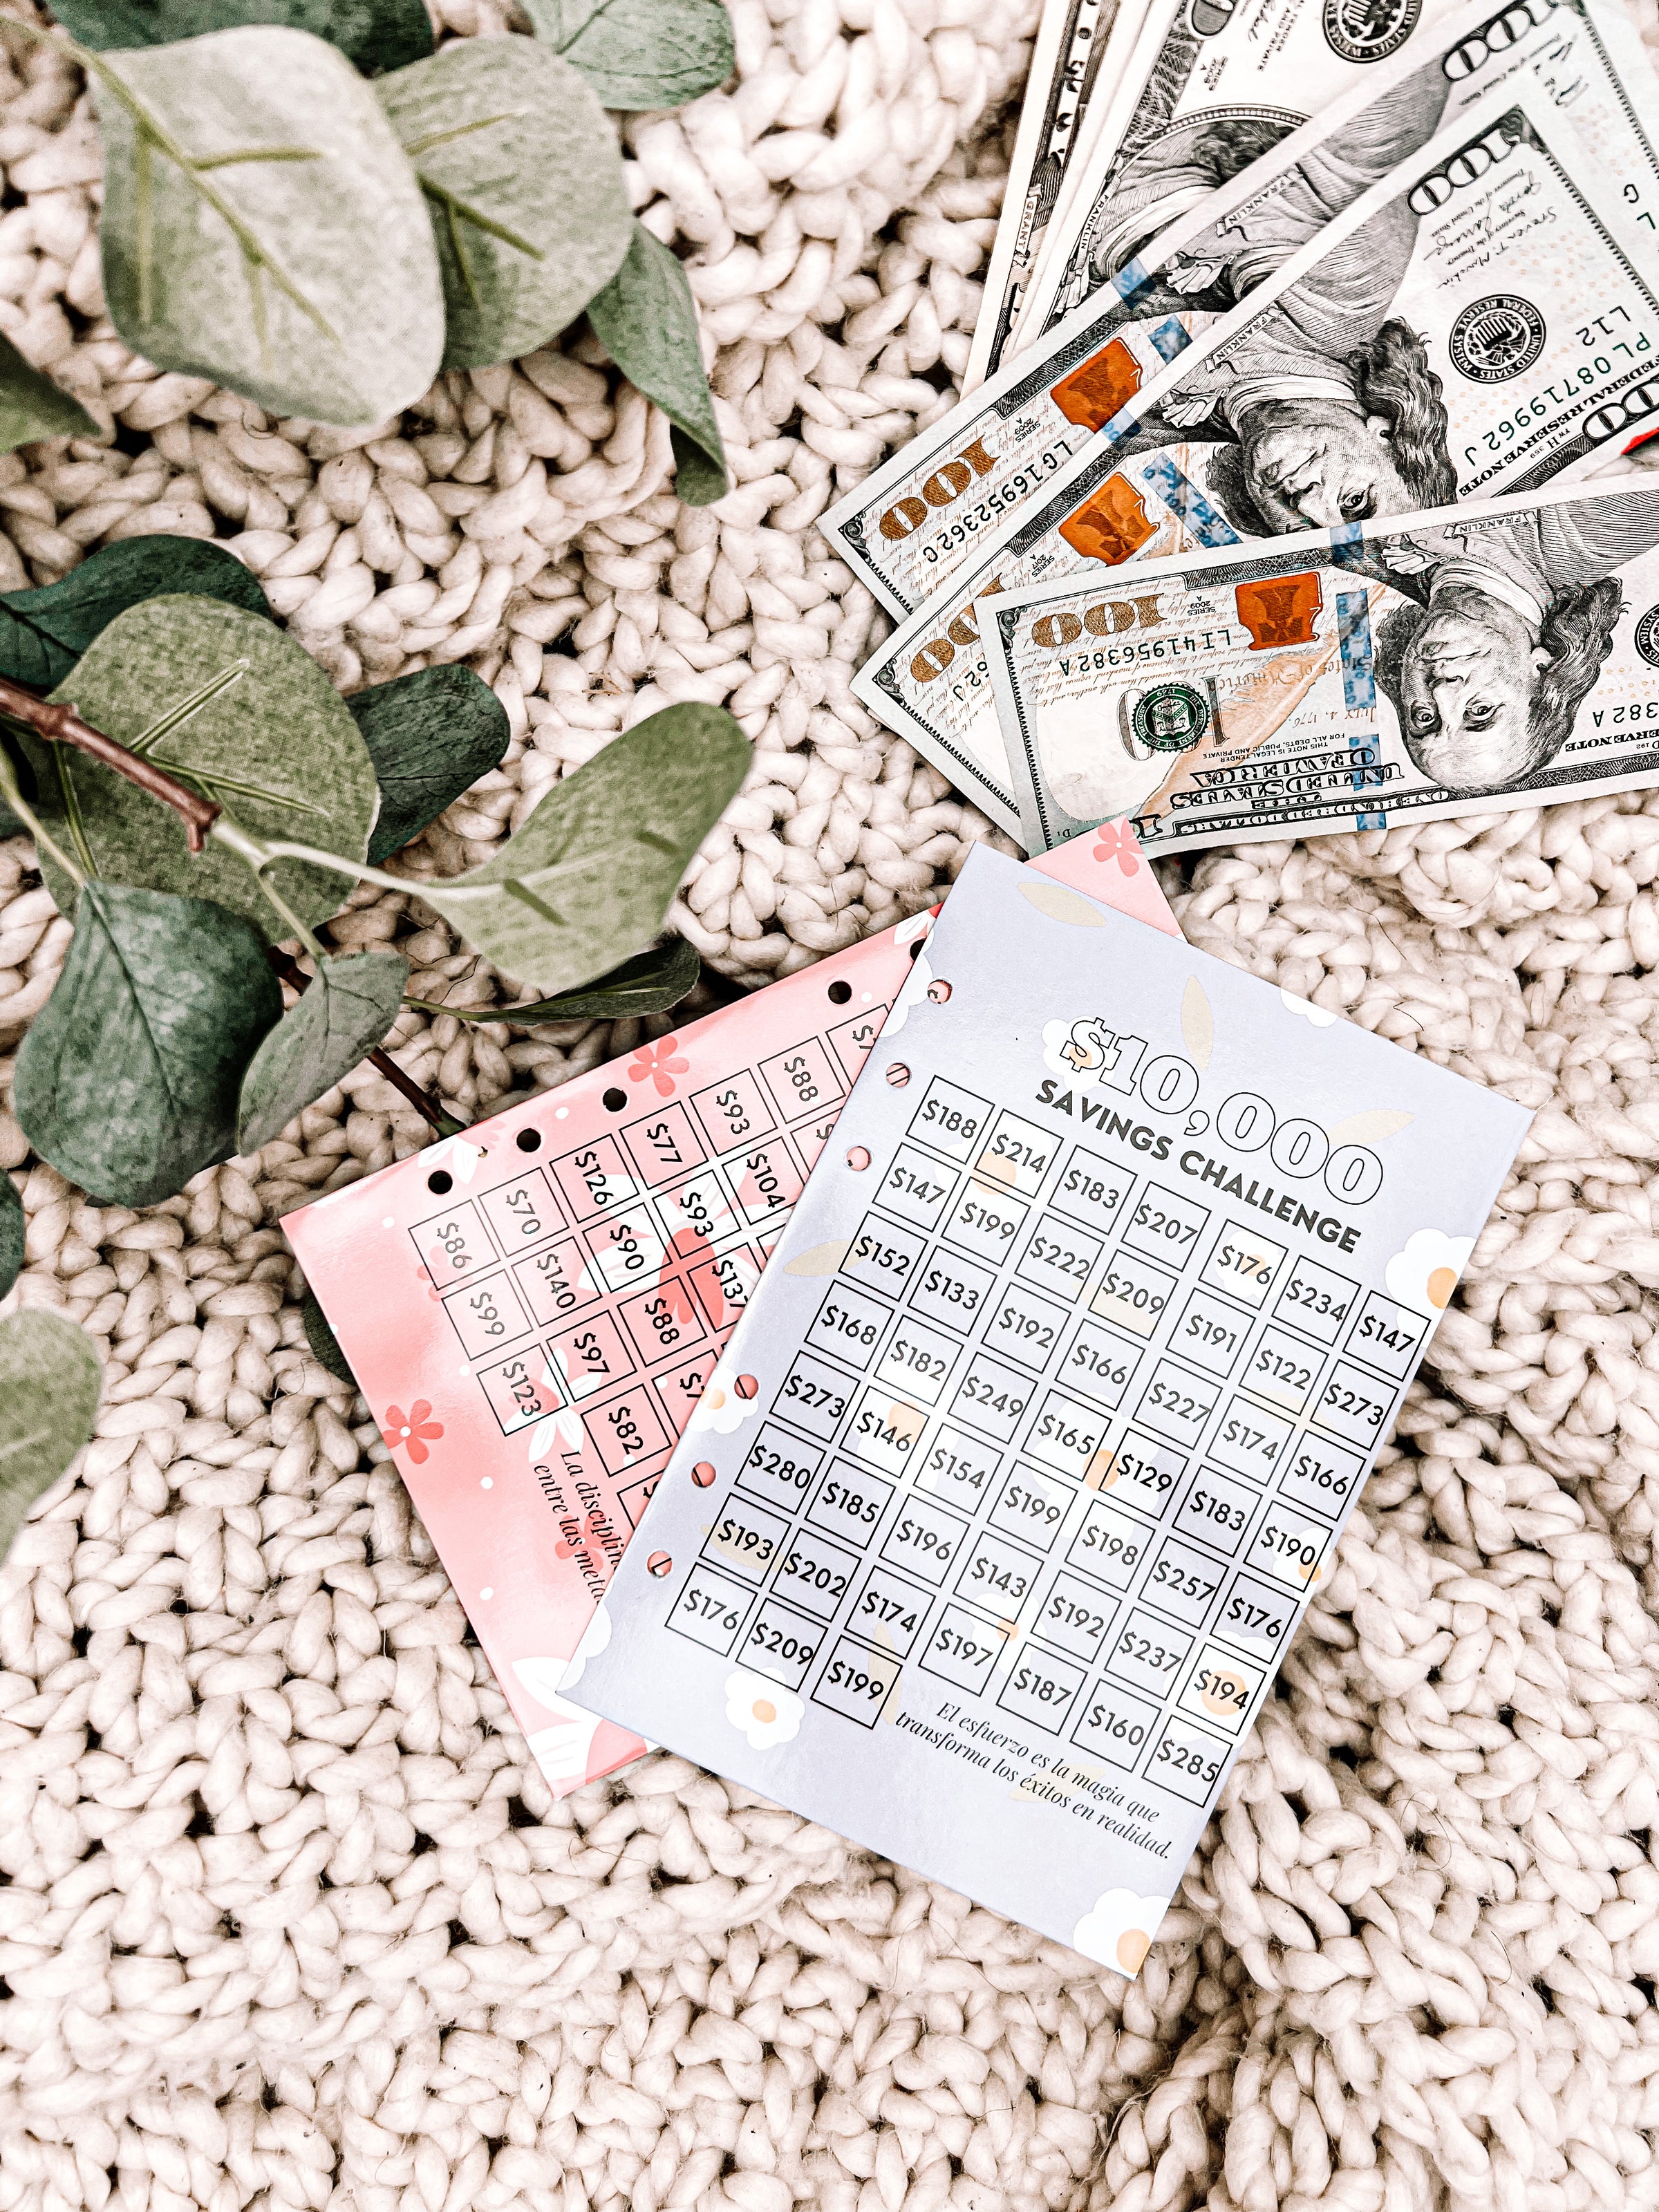 FRANKLIN
100
SERIES 2009 A
LG16952362C
FRANKLIN
100
PL 08719962 J
L12
FEDERAL RESERVE NOTE
UNITED STATES FEDERAL RESERVE SYSTEM
100
SERIES 2009 A
LI41956382A
FRANKLIN
THIS NOTE IS LEGAL TENDER
FOR ALL DEBTS, PUBLIC AND PRIVATE
THE
UNITED STATES
OF AMERICA
ONE HUNDRED DOLLARS
GRANT
$10,000
SAVINGS CHALLENGE
$188 $214 $183 $207 $176 $234 $147
$147 $199 $222 $209 $191 $122 $273
$152 $133 $192 $166 $227 $174 $166
$168 $182 $249 $165 $129 $183 $190
$273 $146 $154 $199 $198 $257 $176
$280 $185 $196 $143 $192 $237 $194
$193 $202 $174 $197 $187 $160 $285
$176 $209 $199
El esfuerzo es la magia que
transforma los éxitos en realidad.
$88
$93 $104
$77 $93 $137
$126 $90 $88
$70 $140 $97 $82
$86 $99 $123
La
entre las